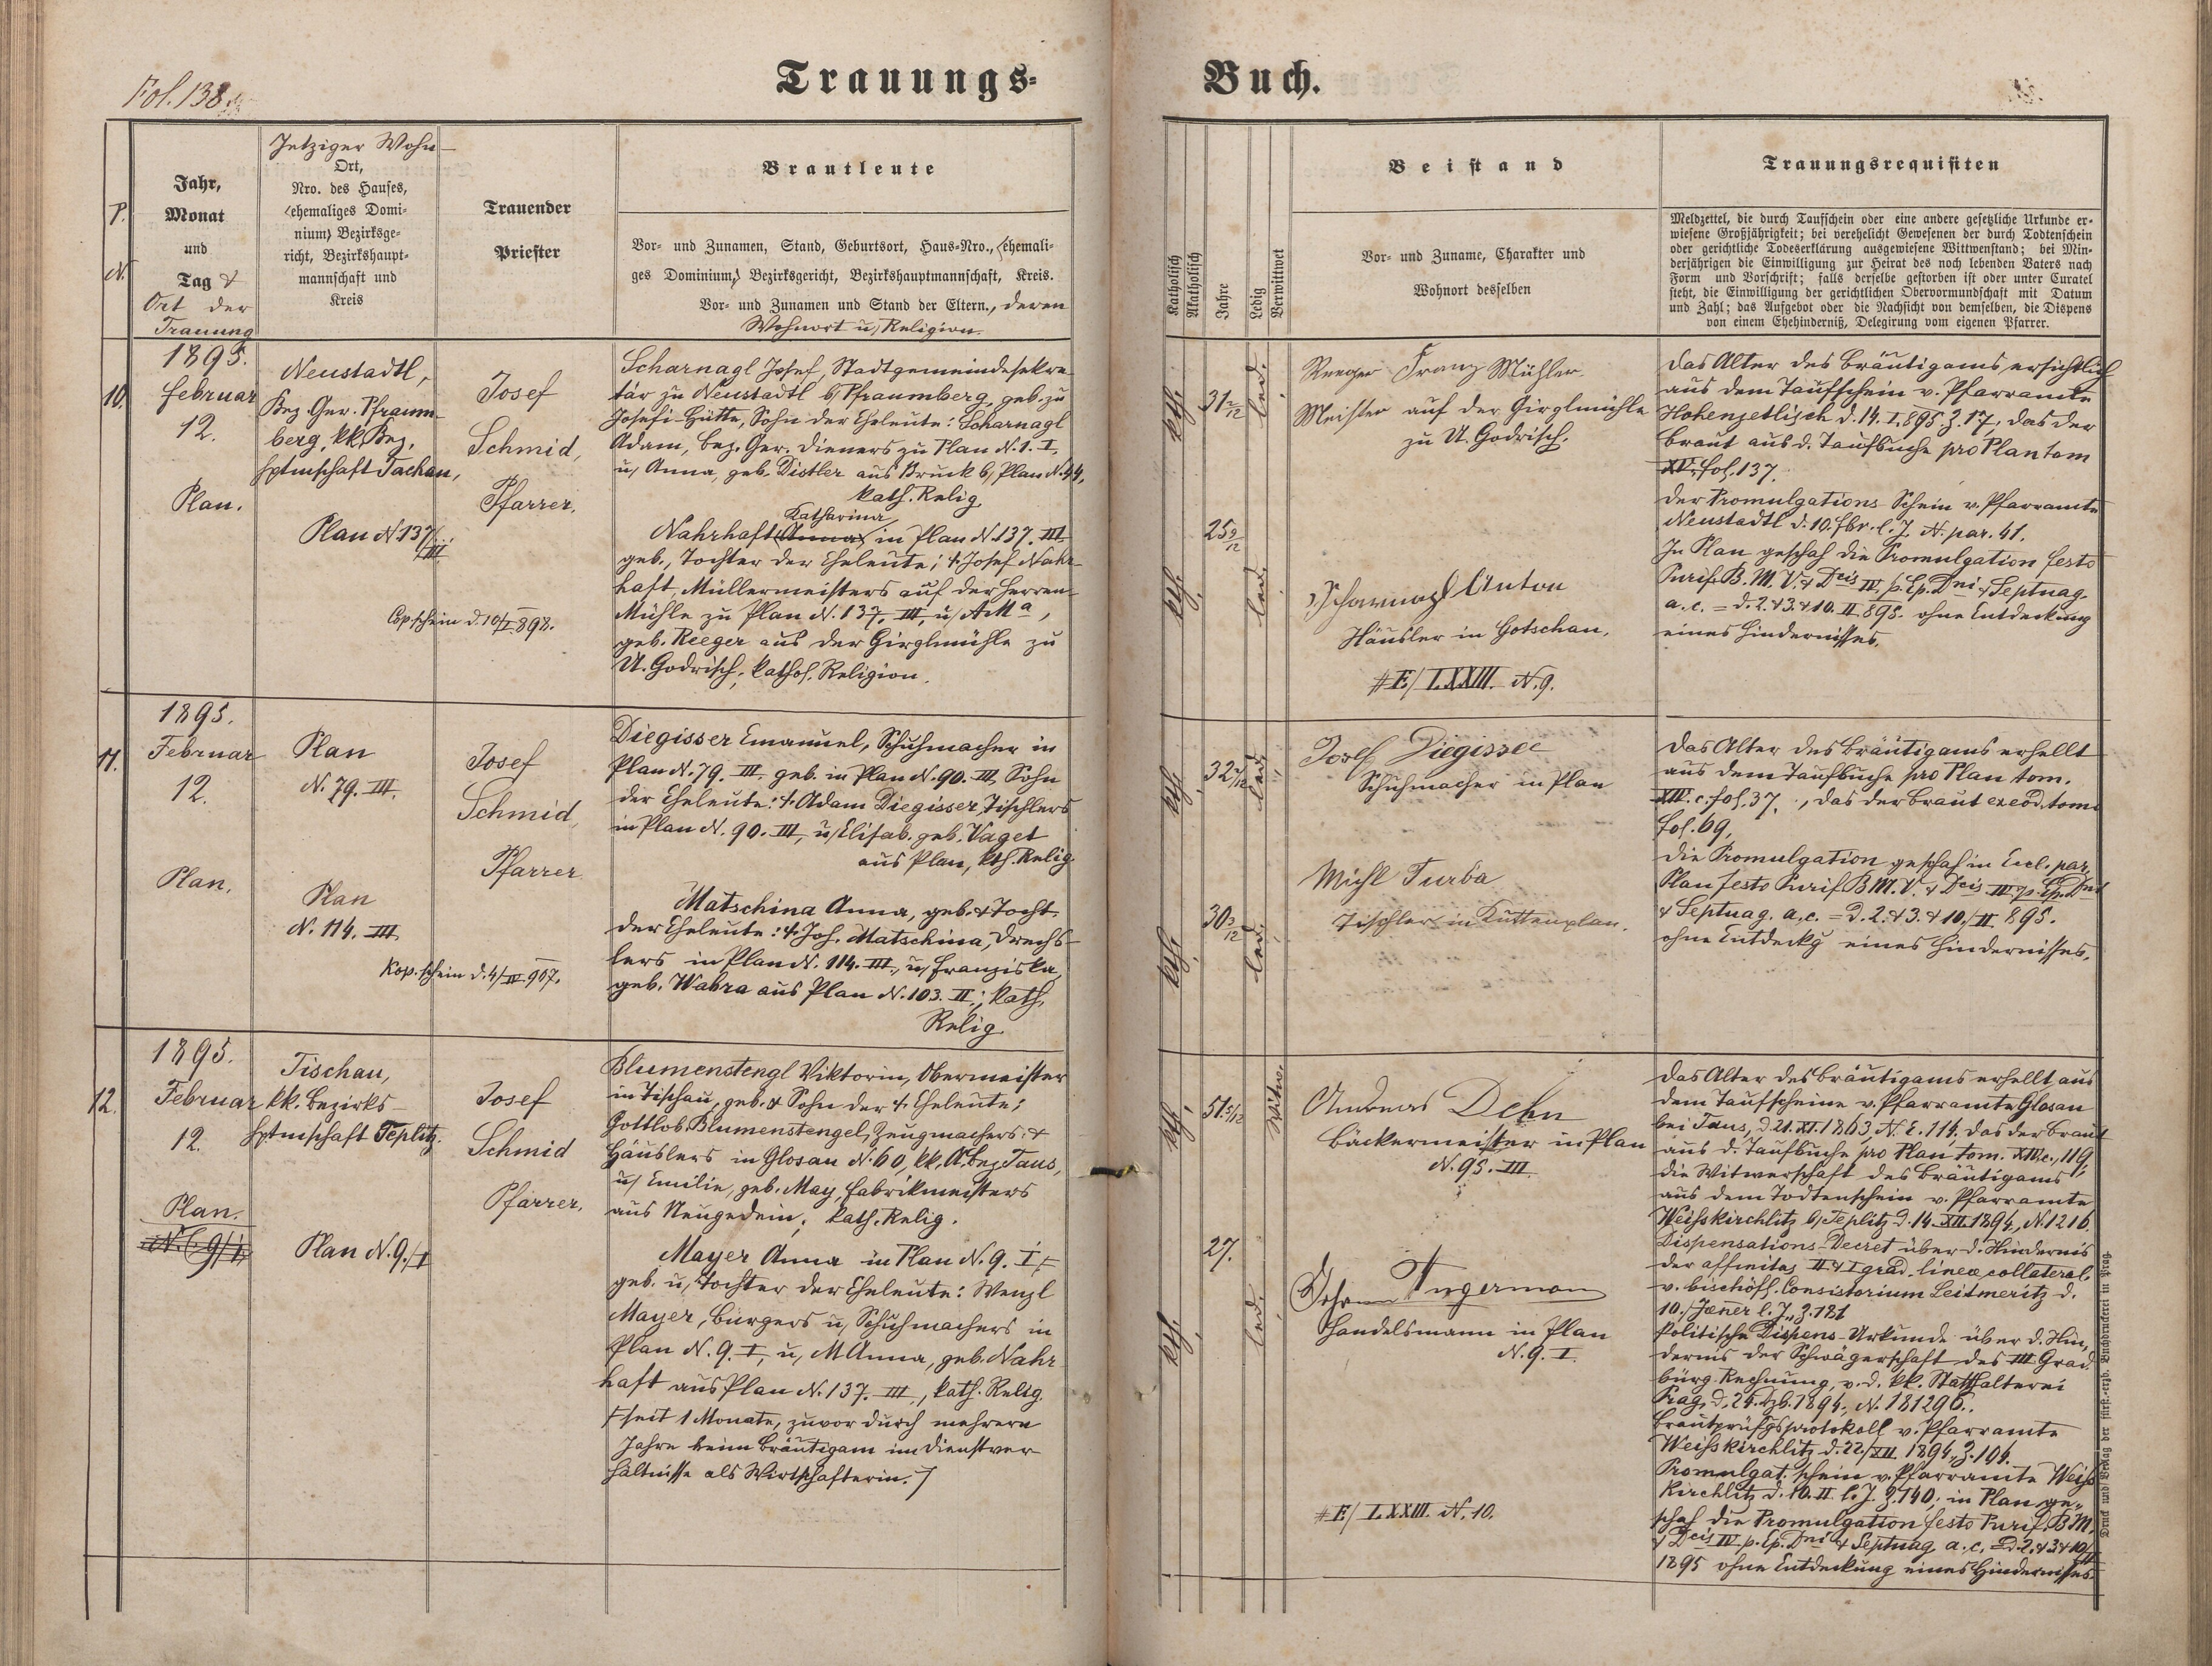 Fol. 138.
Trauungs-
Buch.
P.
N.
Jahr,
Monat
und
Tag &
Ort der
Trauung
Jetziger Wohn-
Ort,
Nro. des Hauses,
(ehemaliges Domi-
nium) Bezirksge-
richt, Bezirkshaupt-
mannschaft und
Kreis
Trauender
Priester
Brautleute
Vor- und Zunamen, Stand, Geburtsort, Haus-Nro., (ehemali-
ges Dominium,) Bezirksgericht, Bezirkshauptmannschaft, Kreis.
Vor- und Zunamen und Stand der Eltern., deren
Wohnort u, Religion.
Katholisch
Akatholisch
Jahre
Ledig
Verwittwet
Beistand
Vor- und Zuname, Charakter und
Wohnort desselben
Trauungsrequisiten
Meldzettel, die durch Taufschein oder eine andere gesetzliche Urkunde er-
wiesene Großjährigkeit; bei verehelicht Gewesenen der durch Todtenschein
oder gerichtliche Todeserklärung ausgewiesene Wittwenstand; bei Min-
derjährigen die Einwilligung zur Heirat des noch lebenden Vaters nach
Form und Vorschrift; falls derselbe gestorben ist oder unter Curatel
steht, die Einwilligung der gerichtlichen Obervormundschaft mit Datum
und Zahl; das Aufgebot oder die Nachsicht von demselben, die Dispens
von einem Ehehinderniß, Delegirung vom eigenen Pfarrer.
10.
1895.
Februar
12.
Plan.
Neustadtl,
Bez. Ger. Pfraum-
berg, kk. Bez.
Hptmschaft Tachau,
Plan N. 137/III.
Cop. schein d. 10/I 898.
Josef
Schmid,
Pfarrer.
Scharnagl Josef, Stadtgemeindesekre-
tär zu Neustadtl b/ Pfraumberg, geb. zu
Josefi-Hütte, Sohn der Eheleute: Scharnagl
Adam, bez. Ger. Dieners zu Plan N. 1. I,
u, Anna, geb. Distler aus Bruck b/ Plan N. 44,
kath. Relig.
Katharina
Nahrhaft (Anna) in Plan N. 137. III
geb., Tochter der Eheleute; †. Josef Nahr-
haft, Müllermeisters auf der Herren-
Mühle zu Plan N. 137. III, u, A Ma,
geb. Reeger aus der Girglmühle zu
U. Godrisch; kathol. Religion.
kth.
31 7/12
led.
kth.
25 9/12
led.
Reeger Franz Mühler
Meister auf der Girglmühle
zu U. Godrisch.
Scharnagl Anton
Häusler in Gotschau.
#F./ LXXIII. N. 9.
Das Alter des Bräutigams ersichtlich
aus dem Taufschein v. Pfarramte
Hohenzetlisch d. 14. I. 895. Z. 17, das der
Braut aus d. Taufbuche pro Plan tom
XV. fol. 137.
Der Promulgations-Schein v. Pfarramte
Neustadtl d. 10. Fbr. l. J. N. par. 41.
In Plan geschah die Promulgation festo
Purif. B. M. V. & Dcis IV. p. Ep. Dni & Septuag.
a. c. = d. 2. & 3. & 10. II. 895. ohne Entdeckung
eines Hindernisses.
11.
1895.
Februar
12.
Plan.
Plan
N. 79. III.
Plan
N. 114. III
Kop. schein d. 4/IV 907.
Josef
Schmid,
Pfarrer
Diegisser Emanuel, Schuhmacher in
Plan N. 79. III. geb. in Plan N. 90. III, Sohn
der Eheleute: †. Adam Diegisser, Tischlers
in Plan N. 90. III, u/ Elisab. geb. Vaget
aus Plan, kth. Relig.
Matschina Anna, geb. & Tocht.
der Eheleute: †. Joh. Matschina, Drechs-
lers in Plan N. 114. III., u, Franziska,
geb. Wabra aus Plan N. 103. II; kath.
Relig.
kth.
32 7/12
led.
kth.
30 3/12
led.
Josef Diegisser
Schuhmacher in Plan
Michl Turba
Tischler in Kuttenplan.
Das Alter des Bräutigams erhellt
aus dem Taufbuche pro Plan tom.
XIV. c. fol. 37., das der Braut ex eod. tomo
fol. 69,
Die Promulgation geschah in Eccl. par.
Plan festo Purif. B M. V. & Dcis IV p. Ep. Dni
& Septuag. a. c. = d. 2. & 3. & 10./II 895.
ohne Entdeckg eines Hindernisses.
12.
1895.
Februar
12.
Plan.
N. 9/I.
Tischau,
kk. Bezirks-
Hptmschaft Teplitz.
Plan N. 9./I
Josef
Schmid
Pfarrer.
Blumenstengl Viktorin, Obermeister
in Tischau, geb. & Sohn der †. Eheleute;
Gottlob Blumenstengel, Zeugmachers &
Häuslers in Glosau N. 60, kk. A. bez. Taus,
u/ Emilie, geb. May, Fabrikmeisters
aus Neugedein; kath. Relig.
Mayer Anna in Plan N. 9. I,
geb. u, Tochter der Eheleute: Wenzl
Mayer, Bürgers u, Schuhmachers in
Plan N. 9. I, u, M Anna, geb. Nahr-
haft aus Plan N. 137. III, kath. Relig.
seit 1 Monate, zuvor durch mehrere
Jahre beim Bräutigam im Dienstver-
hältnisse als Wirtschafterin.
kth.
51 5/12
Witw.
kth.
27.
led.
Andreas Dehn
Bäckermeister in Plan
N. 95. III
Johann Ungerman
Handelsmann in Plan
N. 9. I.
#F./ LXXIII. N. 10.
Das Alter des Bräutigams erhellt aus
dem Taufscheine v. Pfarramte Glosau
bei Taus, d. 21. XI. 1863, N. E. 114, das der Braut
aus d. Taufbuche pro Plan tom. XIV c., 119,
die Witwerschaft des Bräutigams
aus dem Todtenschein v. Pfarramte
Weißkirchlitz b/ Teplitz d. 14. XII. 1894, N. 1216.
Dispensations-Decret über d. Hindernis
der affinitas II & I grad. lineæ collateral.
v. bischöfl. Consistorium Leitmeritz d.
10. Jæner l. J., Z. 181
Politische Dispens-Urkunde über d. Hin-
dernis der Schwägerschaft des III Grad.
bürg. Rechnung, v. d. kk. Statthalterei
Prag, d. 24. Dzb. 1894, N. 181296.
Brautprüfgsprotokoll v. Pfarramte
Weißkirchlitz d. 22/XII. 1894, Z. 104.
Promulgat. schein v. Pfarramte Weiß-
kirchlitz d. 10. II l. J. Z. 140; in Plan ge-
schah die Promulgation festo Purif. B M.
& Dcis IV p. Ep. Dni & Septuag. a. c. = d. 2. & 3 & 10/II
1895 ohne Entdeckung eines Hindernisses.
Druck und Verlag der fürst.-erzb. Buchdruckerei in Prag.